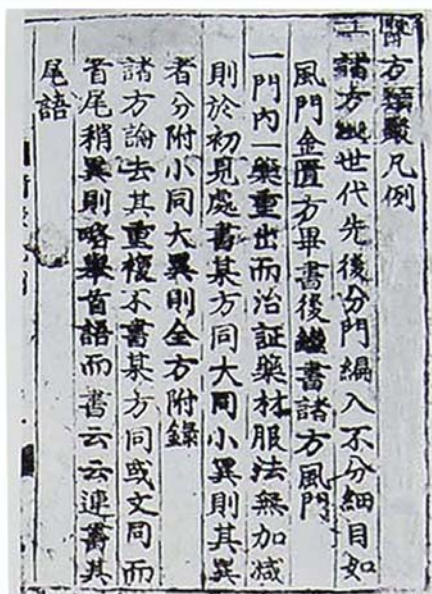 醫方類聚凡例
一諸方以世代先後分門編入不分細目如
風門金匱方畢書後繼書諸方風門
一門內一藥重出而治証藥材服法無加减
則於初見處書某方同大同小異則其異
者分附小同大異則全方附錄
諸方論去其重複不書某方同或文同而
首尾稍異則略舉首語而書云云連書其
尾語